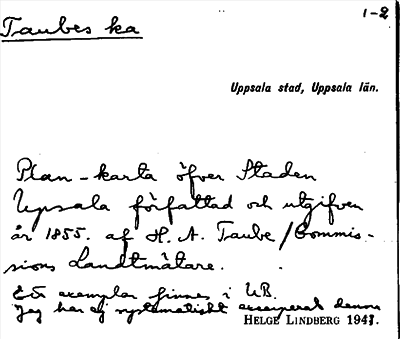 1-2
Taubes ka
Uppsala stad, Uppsala län.
Plan-karta öfver Staden
Upsala författad och utgifven
år 1855. af H. A. Taube / Commis-
sions Landtmätare.
Ett exemplar finnes i UB.
Jag har ej systematiskt excerperat denna
HELGE LINDBERG 1941.